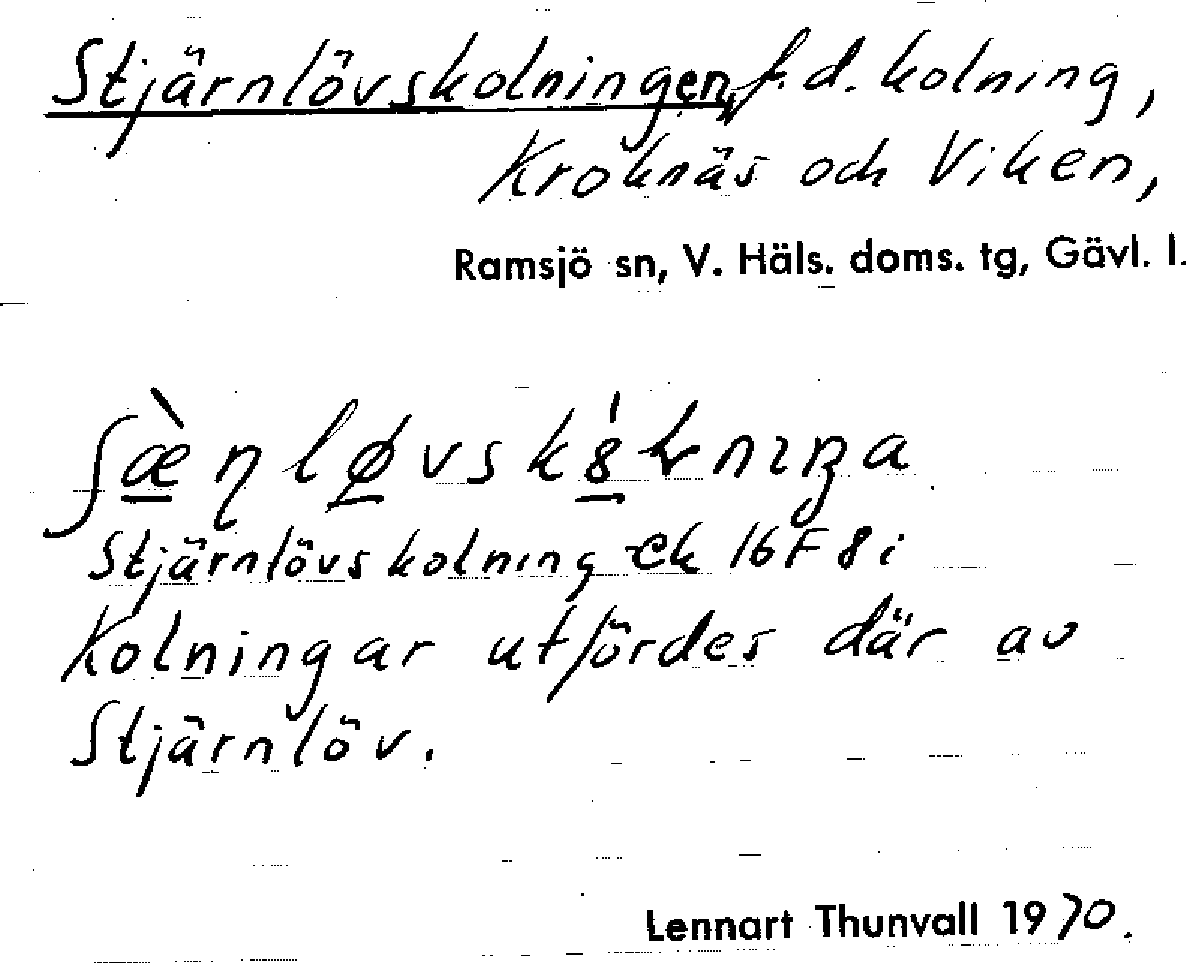 Stjärnlövskolningen, f.d. kolning,
Kroknäs och Viken,
Ramsjö sn, V. Häls. doms. tg, Gävl. l.
Stjärnlövskolning ek 16F 8i
Kolningar utfördes där av
Stjärnlöv.
Lennart Thunvall 1970.